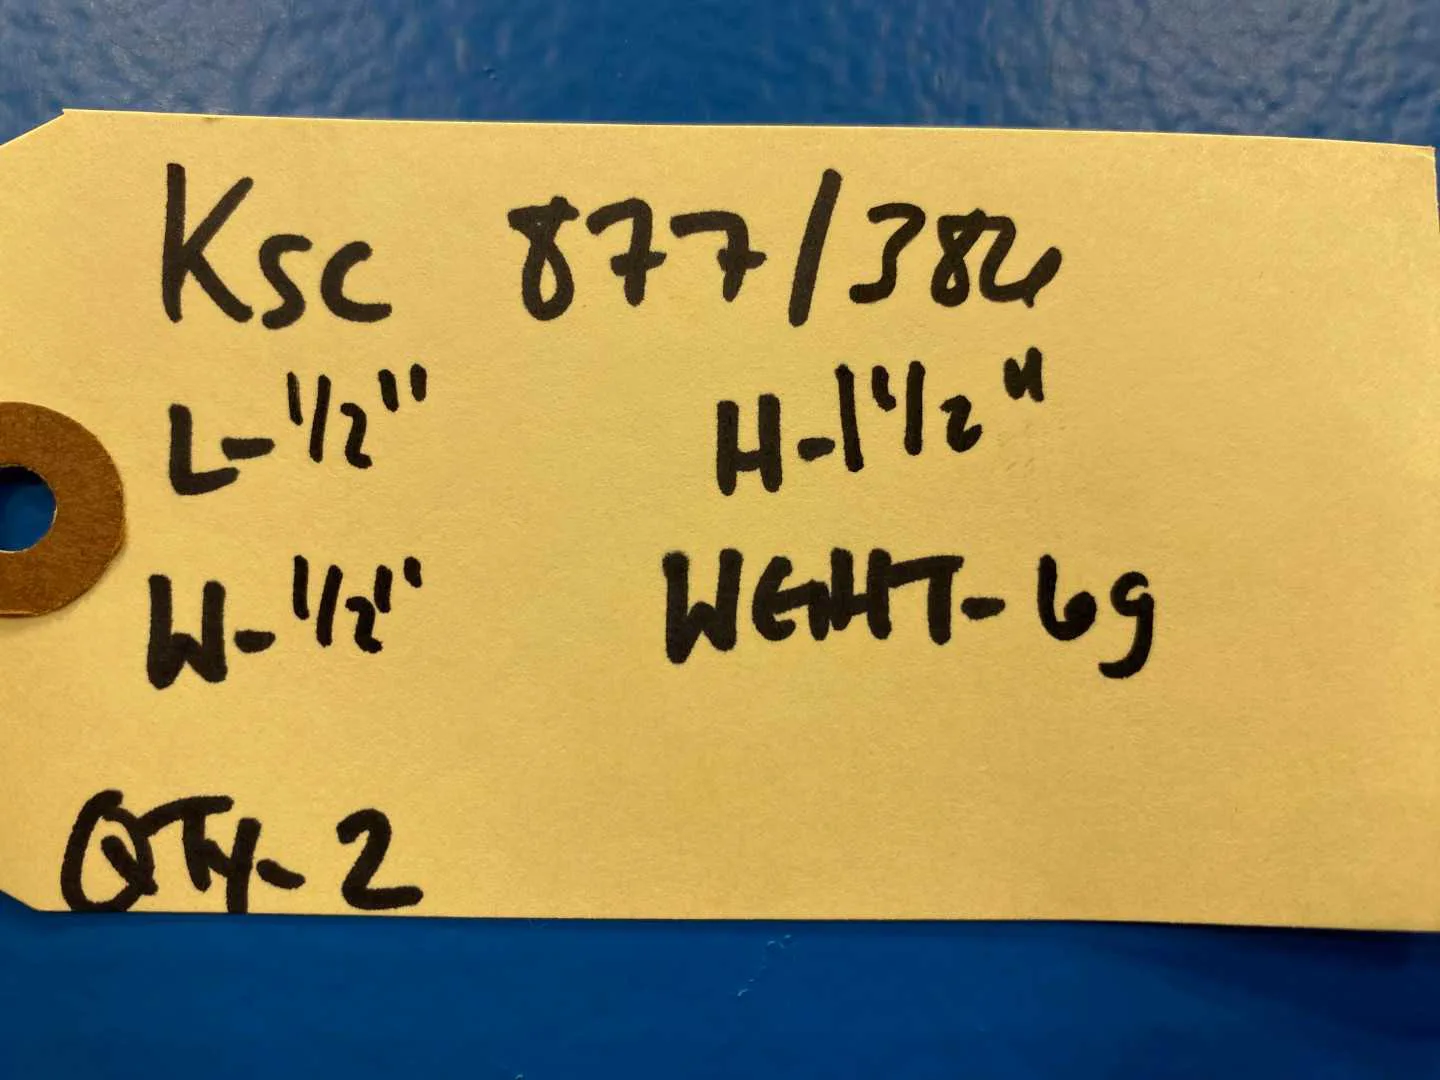 Ksc 877/386
L-1/2" H-1 1/2"
W-1/2" WEIHT-6g
QTY-2